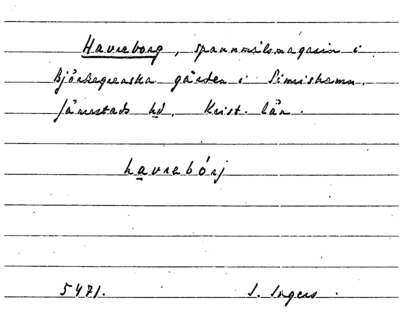 Havreborg, spannmålsmagasin i
Björkegrenska gården i Simrishamn.
Järrestads hd. Krist. län.
havrebórj
5471. I. Ingers.